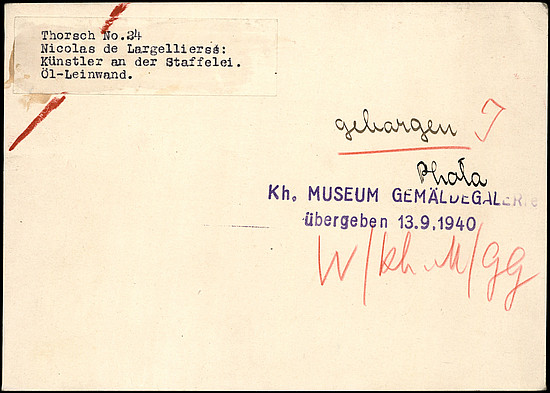 Thorsch No.34
Nicolas de Largellierse:
Künstler an der Staffelei.
Öl-Leinwand.
geborgen I
Photo
Kh. MUSEUM GEMÄLDEGALERIE
übergeben 13.9.1940
W/kh.M/GG